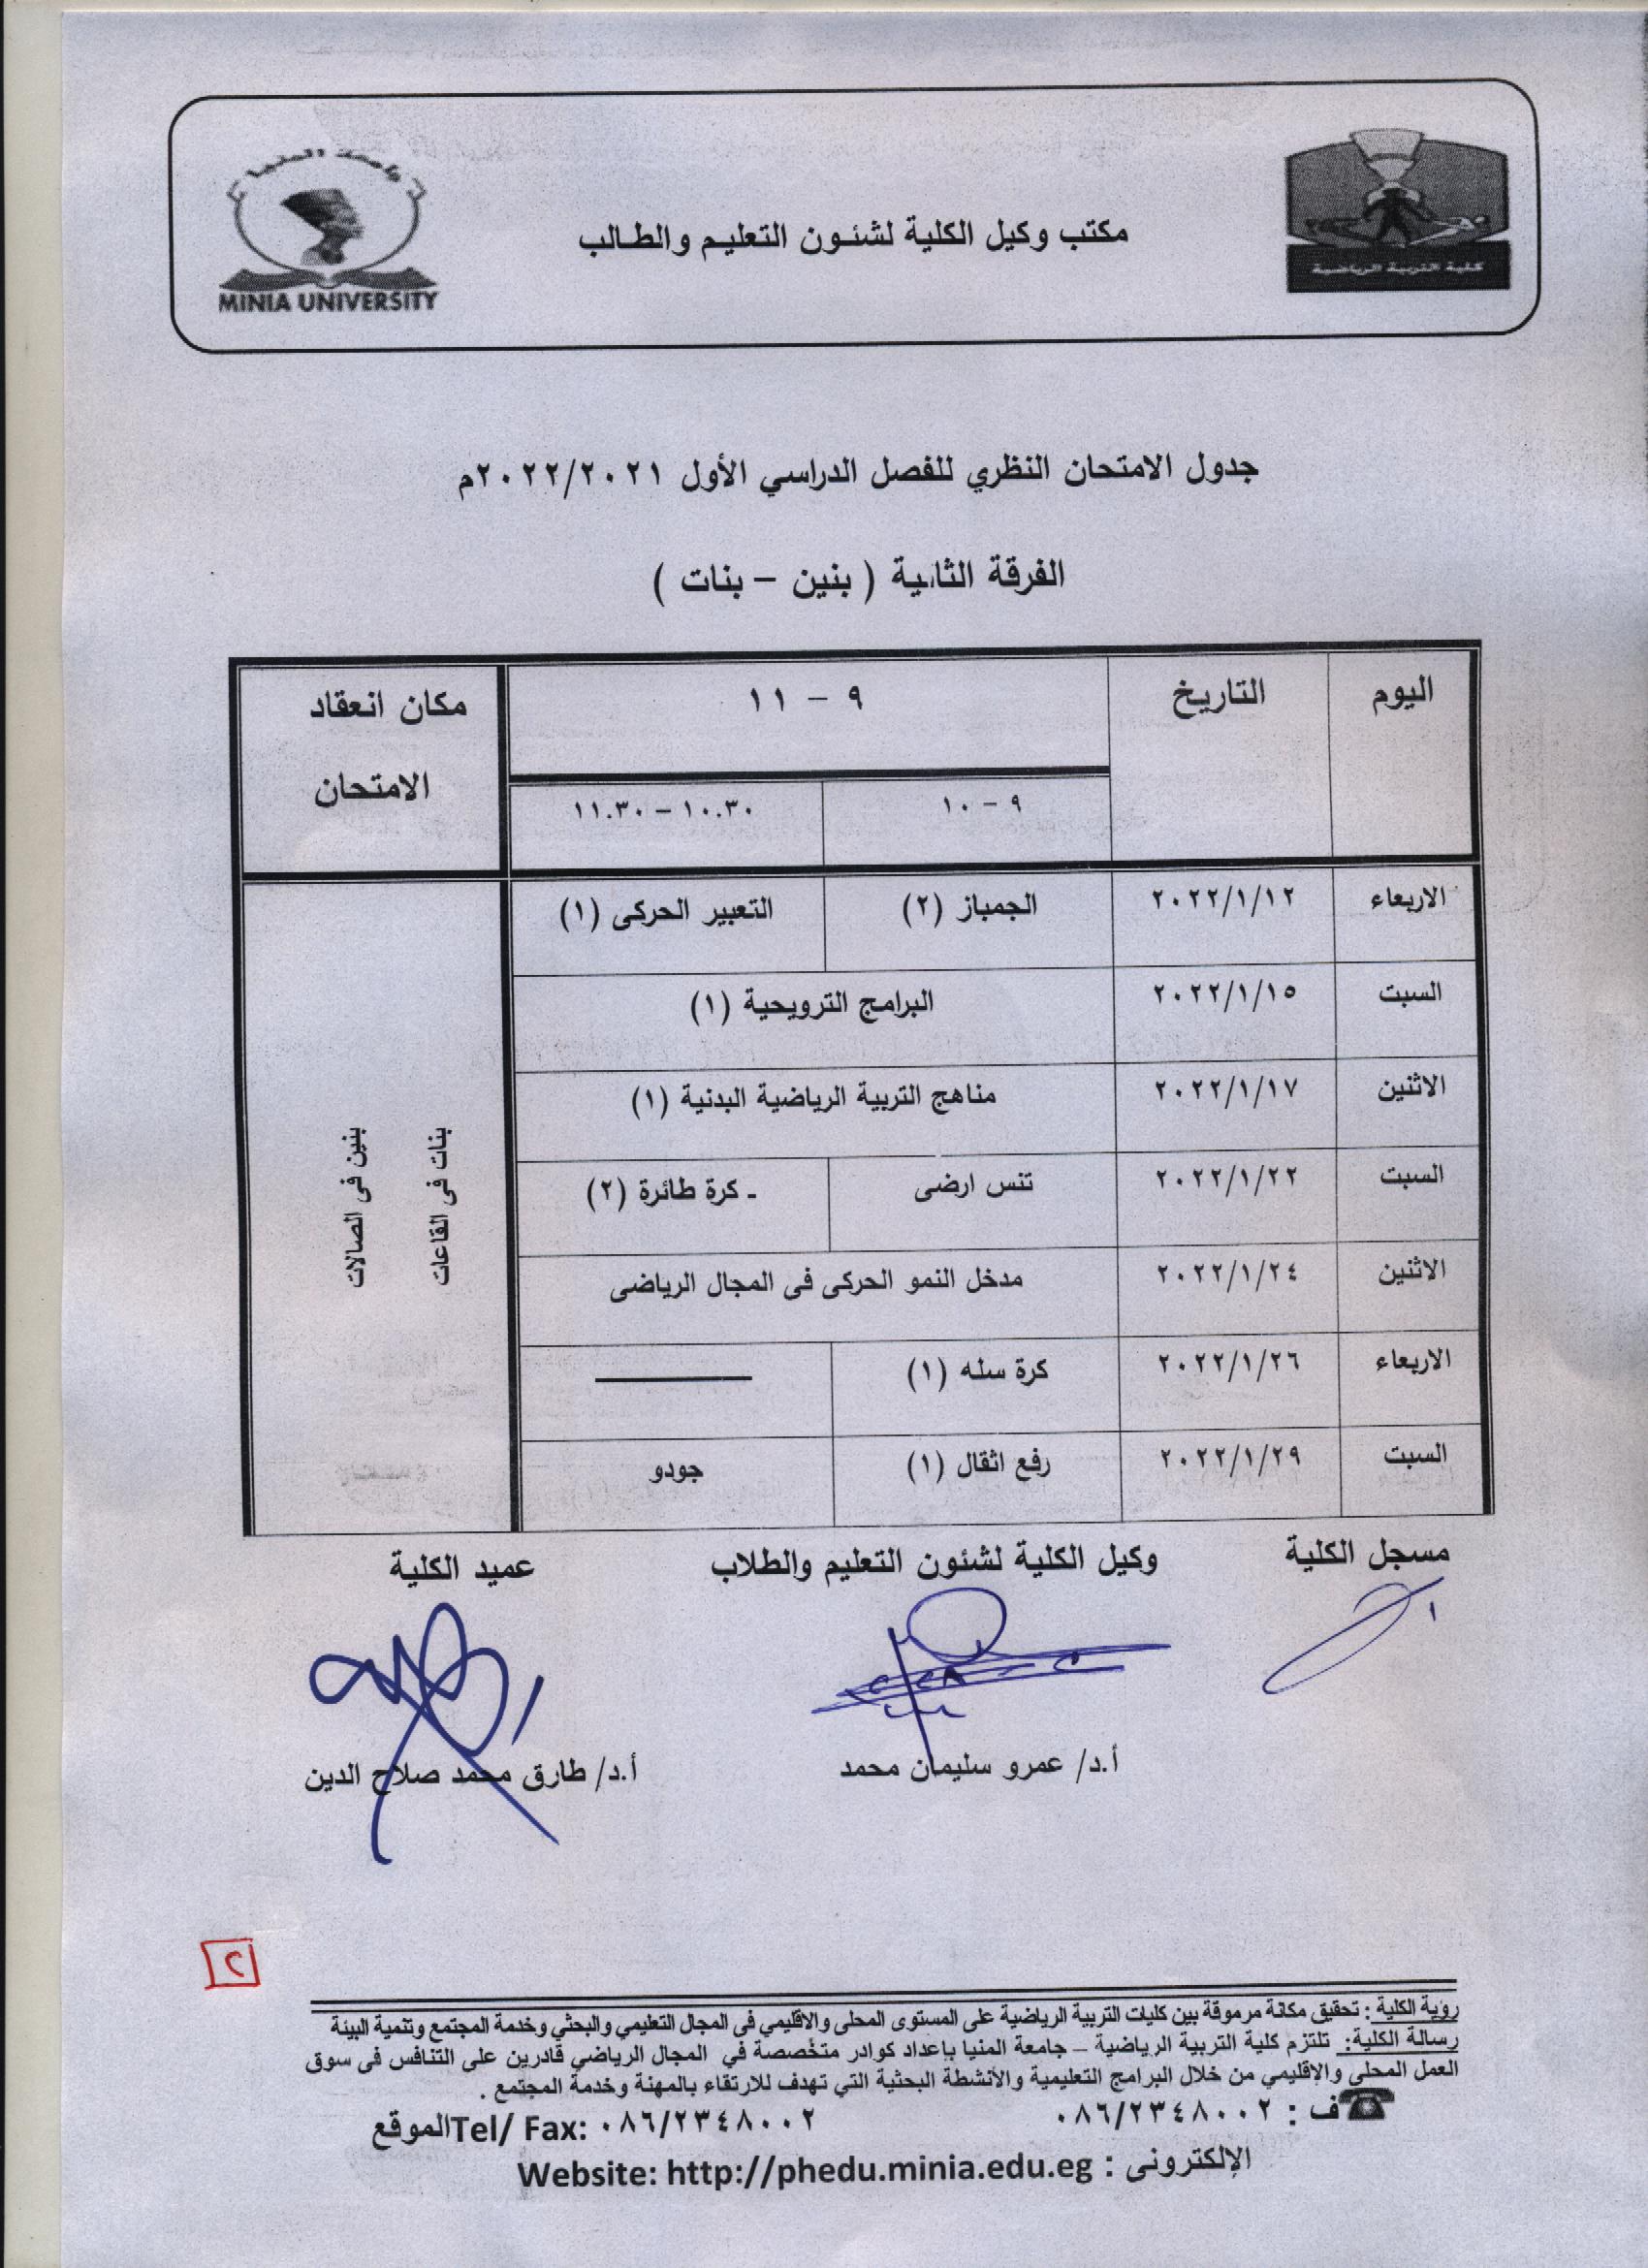 جامعة المنيا
MINIA UNIVERSITY
مكتب وكيل الكلية لشئون التعليم والطالب
كلية التربية الرياضية
جدول الامتحان النظري للفصل الدراسي الأول ٢٠٢٢/٢٠٢١م
الفرقة الثانية ( بنين – بنات )
اليوم التاريخ ٩ – ١١ مكان انعقاد الامتحان
٩ – ١٠ ١٠.٣٠ – ١١.٣٠
الاربعاء ٢٠٢٢/١/١٢ الجمباز (٢) التعبير الحركى (١)
السبت ٢٠٢٢/١/١٥ البرامج الترويحية (١)
الاثنين ٢٠٢٢/١/١٧ مناهج التربية الرياضية البدنية (١)
السبت ٢٠٢٢/١/٢٢ تنس ارضى ـ كرة طائرة (٢)
الاثنين ٢٠٢٢/١/٢٤ مدخل النمو الحركى فى المجال الرياضى
الاربعاء ٢٠٢٢/١/٢٦ كرة سله (١)
السبت ٢٠٢٢/١/٢٩ رفع اثقال (١) جودو
بنين فى الصالات
بنات فى القاعات
مسجل الكلية وكيل الكلية لشئون التعليم والطلاب عميد الكلية
أ.د/ عمرو سليمان محمد أ.د/ طارق محمد صلاح الدين
٢
رؤية الكلية : تحقيق مكانة مرموقة بين كليات التربية الرياضية على المستوى المحلى والاقليمي فى المجال التعليمي والبحثي وخدمة المجتمع وتنمية البيئة
رسالة الكلية: تلتزم كلية التربية الرياضية – جامعة المنيا بإعداد كوادر متخصصة في المجال الرياضي قادرين على التنافس فى سوق
العمل المحلى والإقليمي من خلال البرامج التعليمية والأنشطة البحثية التي تهدف للارتقاء بالمهنة وخدمة المجتمع .
ف : ٠٨٦/٢٣٤٨٠٠٢ Tel/ Fax: ٠٨٦/٢٣٤٨٠٠٢ الموقع
الإلكترونى : Website: http://phedu.minia.edu.eg